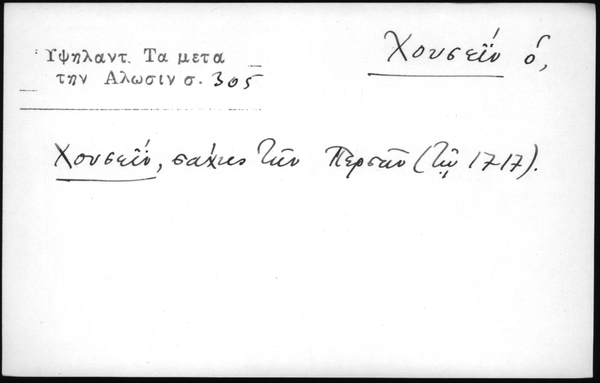 Υψηλαντ. Τα μετα
την Αλωσιν σ. 305
Χουσεΐν ὁ,
Χουσεΐν, σάχης τῶν Περσῶν (τῷ 1717).